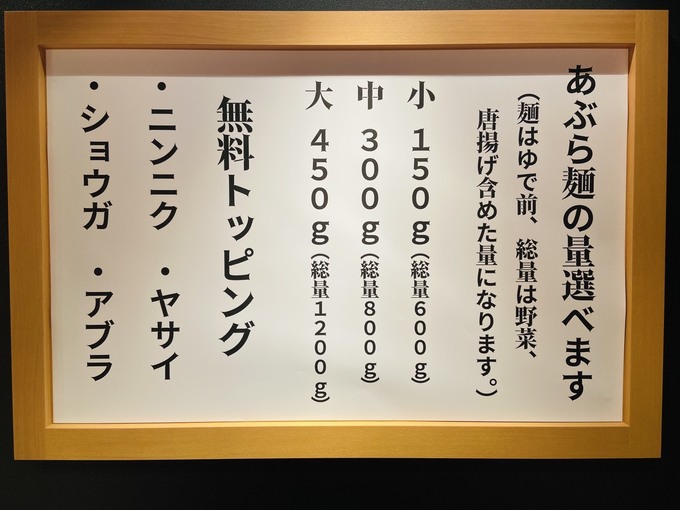 あぶら麺の量選べます
（麺はゆで前、総量は野菜、
唐揚げ含めた量になります。）
小 １５０ｇ（総量６００ｇ）
中 ３００ｇ（総量８００ｇ）
大 ４５０ｇ（総量１２００ｇ）
無料トッピング
・ニンニク ・ヤサイ
・ショウガ ・アブラ